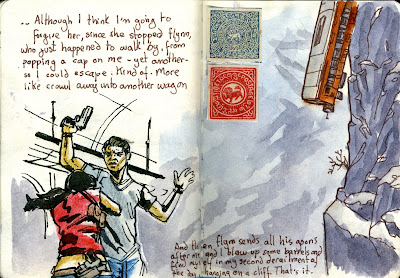 ... Although I think I'm going to
forgive her, since she stopped Flynn,
who just happened to walk by, from
popping a cap on me - yet another-
so I could escape. Kind of. More
like crawl away into another wagon
And then, Flynn sends all his goons
after me and I blow up some barrels and
find myself in my second derailment of
the day, hanging on a cliff. That's it.